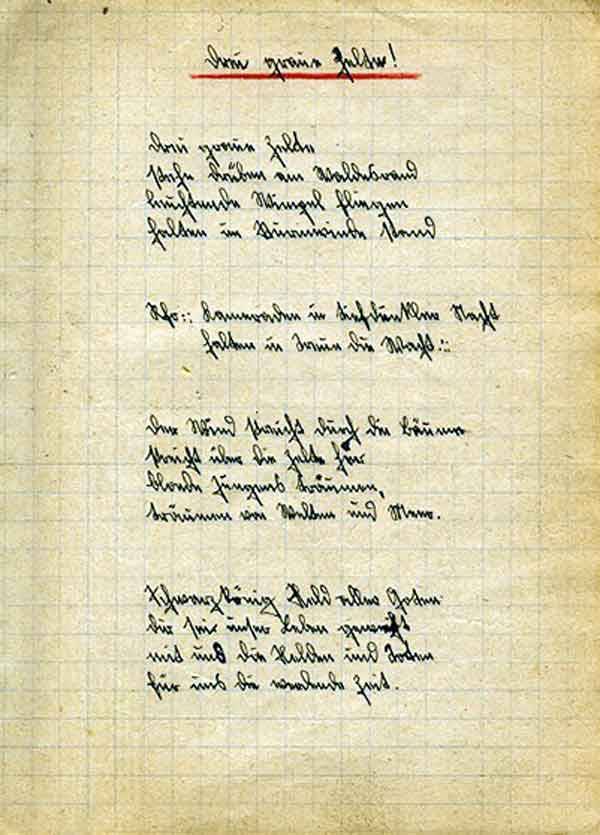 Drei graue Zelte!
Drei graue Zelte
stehn drüben am Waldesrand
leuchtende Wimpel fliegen
halten im Sturmwinde stand
Rfr.:: Kameraden in tiefdunkler Nacht
halten in Treue die Wacht.::
Der Wind streicht durch die Bäume
streicht über die Zelte her
blonde Jungens träumen,
träumen von Welten und Meer.
Schwarzkönig Held aller Goten
dir sei unser Leben geweiht
mit uns die Helden und Toten
für uns die werdende Zeit.